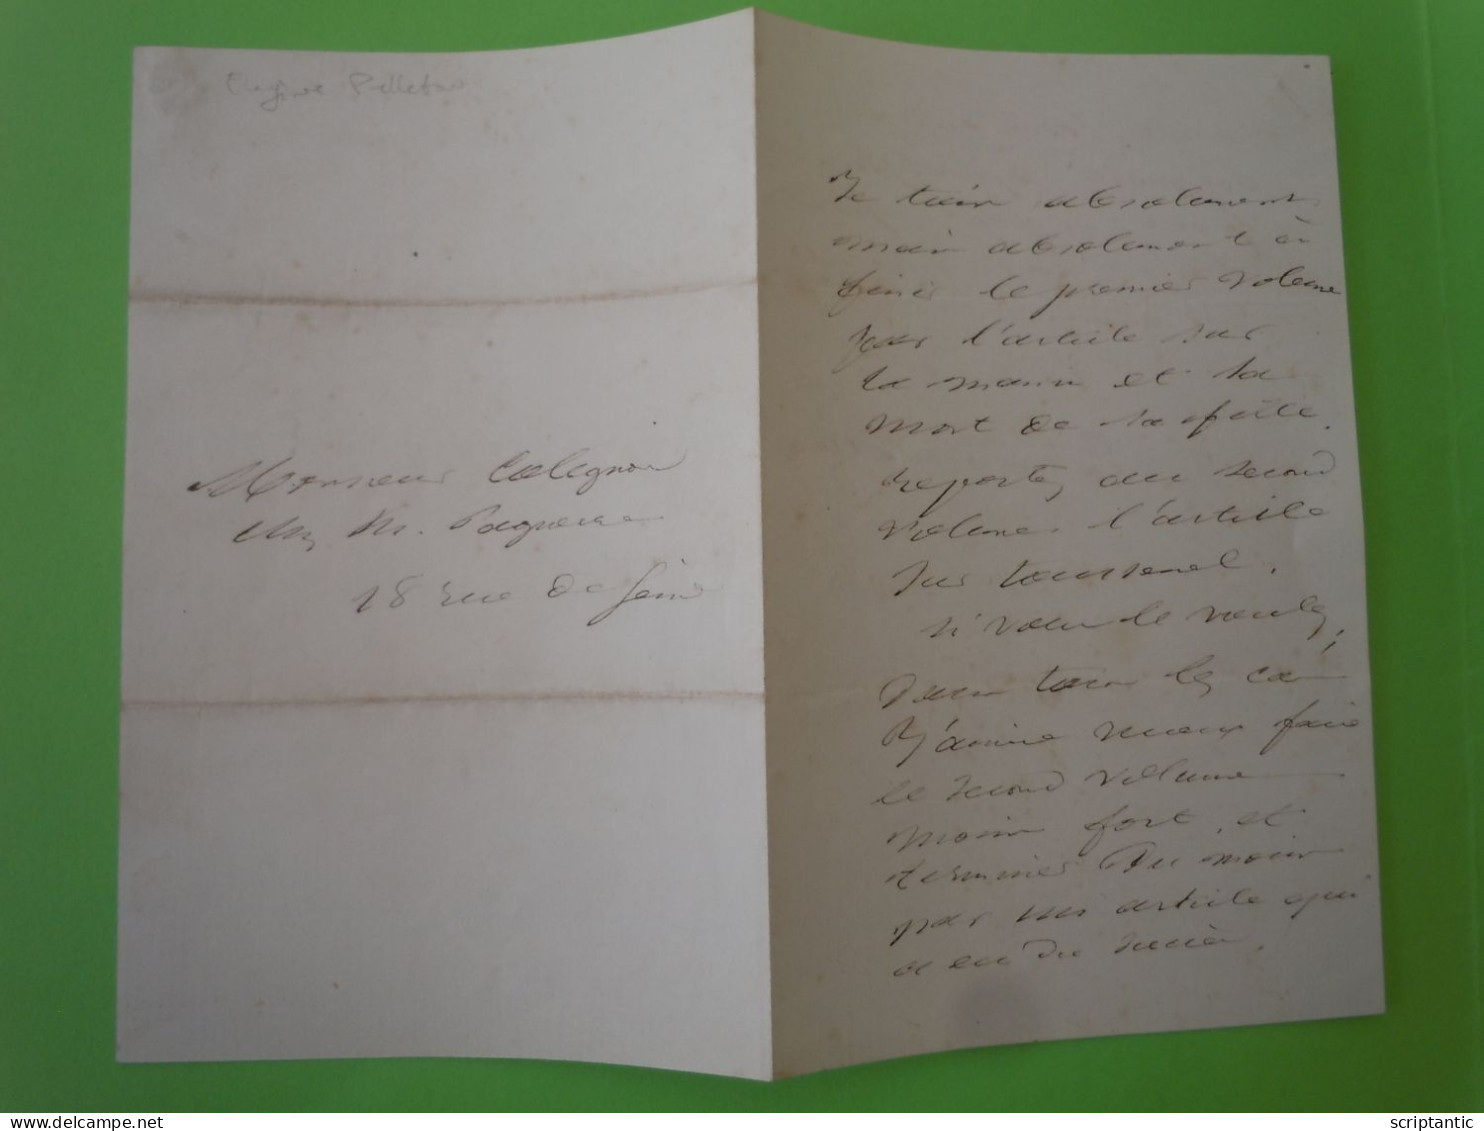 Eugène Pelletan
Monsieur Colognon
chez Mr. Pagnerre
18 rue de Seine
Je tiens absolument
mais absolument à
finir le premier volume
par l'article sur
la main et la
mort de sa fille.
Reportez au second
volume l'article
sur Toussenel.
si vous le voulez,
dans tous les cas
J'aime mieux faire
le second volume
moins fort, et
terminer du moins
par un article qui
a eu du succès.
scriptantic